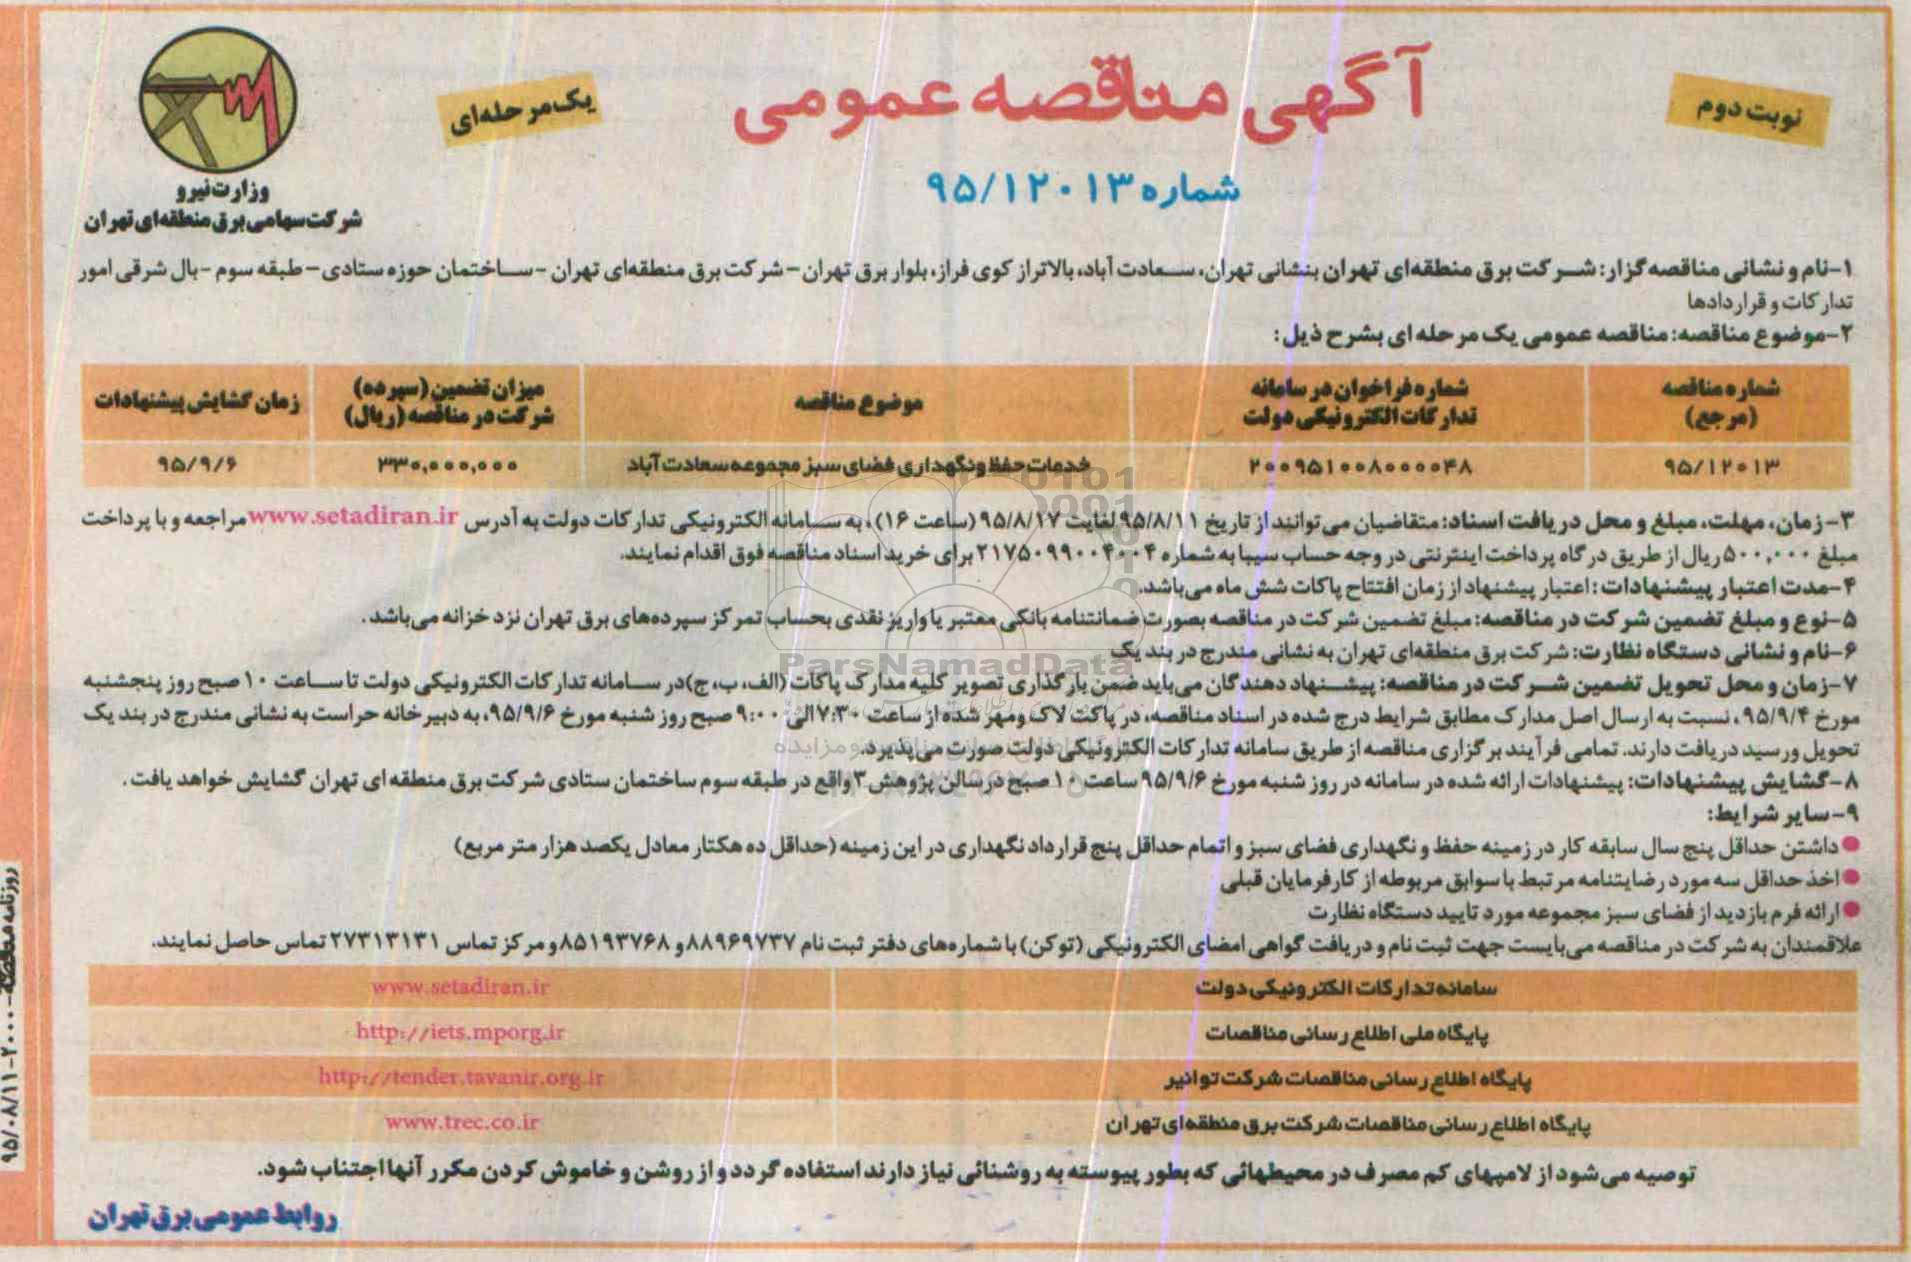 آگهی مناقصه عمومی
نوبت دوم
یک مرحله‌ای
شماره ۹۵/۱۲۰۱۳
وزارت نیرو
شرکت سهامی برق منطقه‌ای تهران
۱-نام و نشانی مناقصه گزار: شرکت برق منطقه‌ای تهران بنشانی تهران، سعادت آباد، بالاتر از کوی فراز، بلوار برق تهران – شرکت برق منطقه‌ای تهران -ساختمان حوزه ستادی – طبقه سوم -بال شرقی امور
تدارکات و قراردادها
۲-موضوع مناقصه: مناقصه عمومی یک مرحله ای بشرح ذیل:
شماره مناقصه (مرجع) شماره فراخوان در سامانه تدارکات الکترونیکی دولت موضوع مناقصه میزان تضمین (سپرده) شرکت در مناقصه (ریال) زمان گشایش پیشنهادات
۹۵/۱۲۰۱۳ ۲۰۰۹۵۱۰۰۸۰۰۰۰۴۸ خدمات حفظ ونگهداری فضای سبز مجموعه سعادت آباد ۳۳۰,۰۰۰,۰۰۰ ۹۵/۹/۶
۳-زمان، مهلت، مبلغ و محل دریافت اسناد: متقاضیان می‌توانند از تاریخ ۹۵/۸/۱۱ لغایت ۹۵/۸/۱۷ (ساعت ۱۶)، به سامانه الکترونیکی تدارکات دولت به آدرس www.setadiran.ir مراجعه و با پرداخت
مبلغ ۵۰۰,۰۰۰ ریال از طریق درگاه پرداخت اینترنتی در وجه حساب سیبا به شماره ۲۱۷۵۰۹۹۰۰۴۰۰۴ برای خرید اسناد مناقصه فوق اقدام نمایند.
۴-مدت اعتبار پیشنهادات: اعتبار پیشنهاد از زمان افتتاح پاکات شش ماه می‌باشد.
۵-نوع و مبلغ تضمین شرکت در مناقصه: مبلغ تضمین شرکت در مناقصه بصورت ضمانتنامه بانکی معتبر یا واریز نقدی بحساب تمرکز سپرده‌های برق تهران نزد خزانه می‌باشد.
۶-نام و نشانی دستگاه نظارت: شرکت برق منطقه‌ای تهران به نشانی مندرج در بند یک
ParsNamadData
۷-زمان و محل تحویل تضمین شرکت در مناقصه: پیشنهاد دهندگان می‌باید ضمن بارگذاری تصویر کلیه مدارک پاکات (الف، ب، ج) در سامانه تدارکات الکترونیکی دولت تا ساعت ۱۰ صبح روز پنجشنبه
مورخ ۹۵/۹/۴، نسبت به ارسال اصل مدارک مطابق شرایط درج شده در اسناد مناقصه، در پاکت لاک ومهر شده از ساعت ۷:۳۰ الی ۹:۰۰ صبح روز شنبه مورخ ۹۵/۹/۶، به دبیرخانه حراست به نشانی مندرج در بند یک
تحویل ورسید دریافت دارند. تمامی فرآیند برگزاری مناقصه از طریق سامانه تدارکات الکترونیکی دولت صورت می‌پذیرد.
۸-گشایش پیشنهادات: پیشنهادات ارائه شده در سامانه در روز شنبه مورخ ۹۵/۹/۶ ساعت ۱۰ صبح در سالن پژوهش ۳ واقع در طبقه سوم ساختمان ستادی شرکت برق منطقه ای تهران گشایش خواهد یافت.
۹-سایر شرایط:
● داشتن حداقل پنج سال سابقه کار در زمینه حفظ و نگهداری فضای سبز و اتمام حداقل پنج قرارداد نگهداری در این زمینه (حداقل ده هکتار معادل یکصد هزار متر مربع)
● اخذ حداقل سه مورد رضایتنامه مرتبط با سوابق مربوطه از کارفرمایان قبلی
● ارائه فرم بازدید از فضای سبز مجموعه مورد تایید دستگاه نظارت
علاقمندان به شرکت در مناقصه می‌بایست جهت ثبت نام و دریافت گواهی امضای الکترونیکی (توکن) با شماره‌های دفتر ثبت نام ۸۸۹۶۹۷۳۷ و ۸۵۱۹۳۷۶۸ و مرکز تماس ۲۷۳۱۳۱۳۱ تماس حاصل نمایند.
سامانه تدارکات الکترونیکی دولت www.setadiran.ir
پایگاه ملی اطلاع رسانی مناقصات http://iets.mporg.ir
پایگاه اطلاع رسانی مناقصات شرکت توانیر http://tender.tavanir.org.ir
پایگاه اطلاع رسانی مناقصات شرکت برق منطقه‌ای تهران www.trec.co.ir
توصیه می شود از لامپهای کم مصرف در محیطهائی که بطور پیوسته به روشنائی نیاز دارند استفاده گردد و از روشن و خاموش کردن مکرر آنها اجتناب شود.
روابط عمومی برق تهران
روزنامه مناقصه-۲۰۰۰-۹۵/۰۸/۱۱